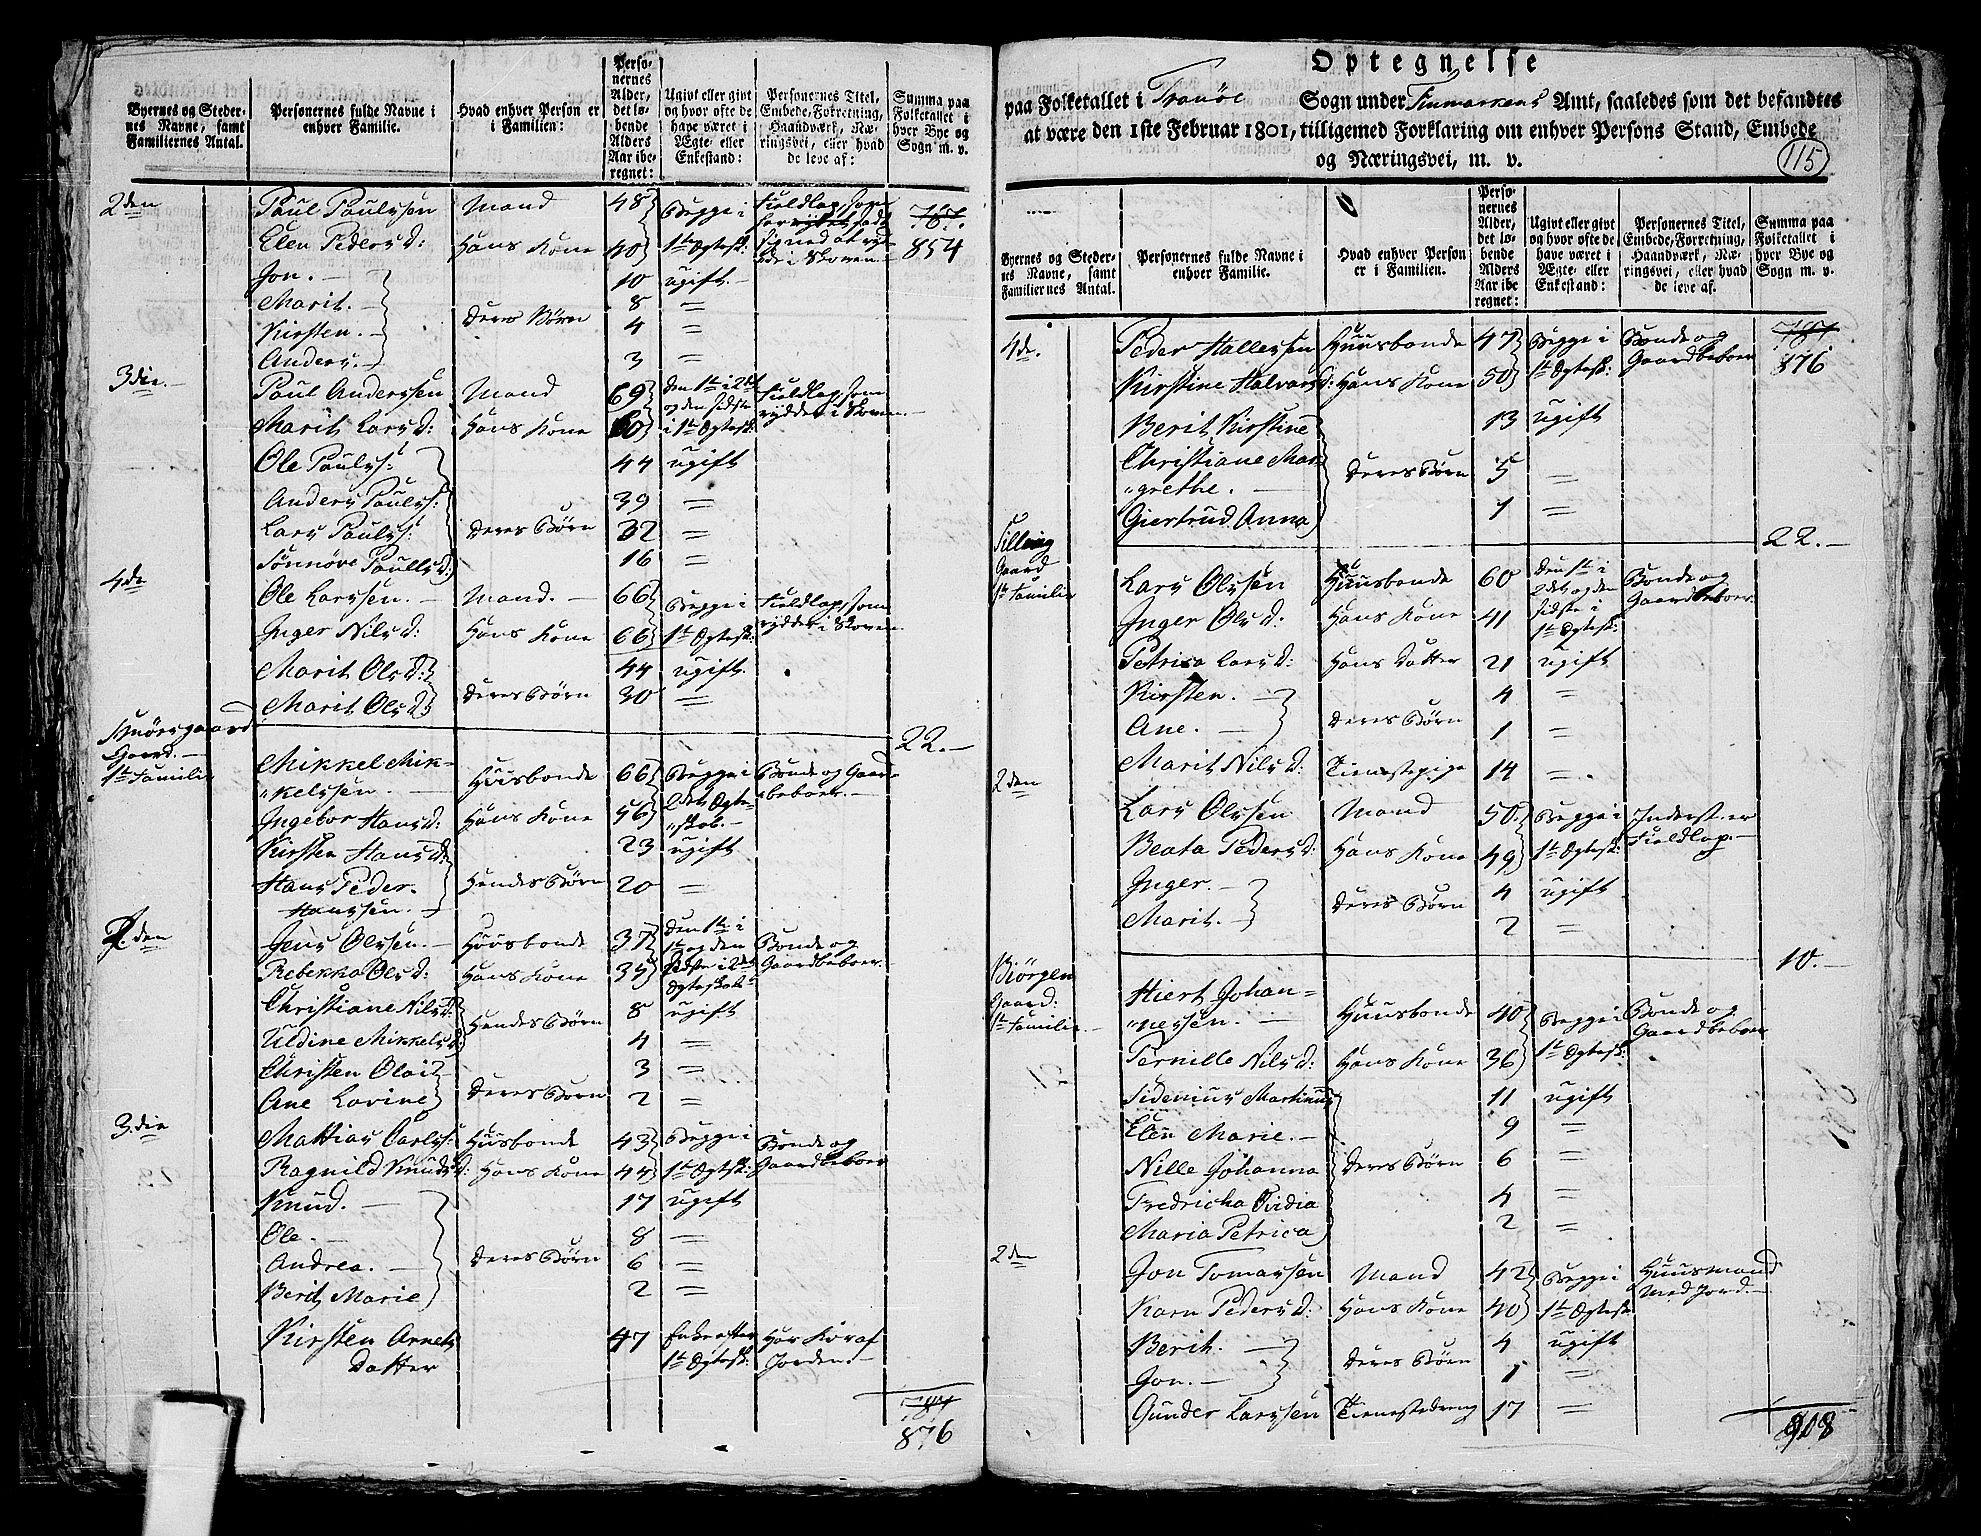 Byernes og Steder-
nes Navne, samt
Familiernes Antal.
Personernes fulde Navne i
enhver Familie.
Hvad enhver Person er
i Familien:
Perso-
nernes
Alder,
det lø-
bende
Alders
Aar ibe-
regnet:
Ugivt eller givt
og hvor ofte de
have været i
Ægte- eller
Enkestand:
Personernes Titel,
Embede, Forretning,
Haandværk, Næ-
ringsvei, eller hvad
de leve af:
Summa paa
Folketallet i
hver Bye og
Sogn m. v.
2den Paul Paulsen Mand 48 Begge i 787.
Elen Peders D: Hans Kone 40 1te Ægtesk: 854
Jon. 10 ugift.
Marit. 8 =
Kirsten. Deres Børn 4 =
Anders. 3 =
3die. Paul Andersen Mand 69 den 1te i 2det Fieldlap, som
Marit Lars D: Hans Kone 60 og den sidste i 1te Ægtesk: rydder i Skoven.
Ole Pauls: 44 ugift
Anders Pauls: 39 =
Lars Pauls: Deres Børn 32 =
Sønnøve Paulsd: 16 =
4de Ole Larsen. Mand. 66 Begge i Fieldlap, som
Inger Nils D: Hans Kone 66 1te Ægtesk: rydder i Skoven.
Marit Ols D: 44 ugift.
Marit Ols D: Deres Børn 30 =
22.
Gaard.
1te Familie
Mikkel Mik-
kelsen. Huusbonde 66 Begge i Bonde og Gaard-
Ingebor Hans D: Hans Kone 56 2det Ægte-skab. beboer.
Kirsten Hans D: 23 ugift
Hans Peder Hendes Børn 20 =
Hansen.
2.den Jens Olsen. Huusbonde 37 den 1te i Bonde og
Rebekka Ols D: Hans Kone 35 1te og den sidste i 2det Ægteskab Gaardbeboer.
Christiane Nils D: Hendes Børn 8 ugift
Uldine Mikkels D: 4 =
Christen Olai 3 =
Ane Lovine Deres Børn 2 =
3.die Mattias Carls: Huusbonde 43 Begge i Bonde og
Ragnild Knuds D: Hans Kone 44 1te Ægtesk: Gaardbeboer
Knud. 17 ugift
Ole. 8 =
Andrea. Deres Børn 6 =
Berit Marie 2 =
Kirsten Arnets 47 Enke efter Har Kor af
Datter 1te Ægtesk: Jorden.
787
876
Optegnelse
paa Folketallet i Tranøe Sogn under Finmarkens Amt, saaledes som det befandtes
at være den 1ste Februar 1801, tilligemed Forklaring om enhver Persons Stand, Embede
og Næringsvei, m. v.
115
Byernes og Steder-
nes Navne, samt
Familiernes Antal.
Personernes fulde Navne i
enhver Familie.
Hvad enhver Person
er i Familien.
Perso-
nernes
Alder,
det lø-
bende
Alders
Aar ibe-
regnet:
Ugivt eller givt
og hvor ofte de
have været i
Ægte- eller
Enkestand:
Personernes Titel,
Embede, Forretning,
Haandværk, Næ-
ringsvei, eller hvad
de leve af.
Summa paa
Folketallet i
hver Bye og
Sogn m. v.
4de. Peder Hallesen Huusbonde 47 Begge i Bonde og 787
Kirstine Halvars D: Hans Kone 50 1te Ægtesk: Gaardbeboer 876
Berit Kirstine 13 ugift
Christiane Mar-
grethe. Deres Børn 5 =
Giertrud Anna 1 =
22.
Gaard
1te Familie
Lars Olsen Huusbonde 60 den 1te i Bonde og
Inger Ols D: Hans Kone 41 2det og den sidste i 1te Ægtesk: Gaardbeboer.
Petrica Lars D: Hans Datter 21 ugift
Kirsten. 4 =
Ane. Deres Børn 1 =
Marit Nils D: Tienestepige 14 =
2den Lars Olsen Mand 50 Begge i Inderst er
Beata Peders D: Hans Kone 49 1te Ægtesk: Fieldlap.
Inger. 4 ugift
Marit. Deres Børn 2 =
10.
Biørgen
Gaard:
1te Familie.
Hiert Johan-
nesen. Huusbonde 40 Begge i Bonde og
Pernille Nils D: Hans Kone 36 1te Ægtesk: Gaardbeboer
Sidenius Martinus 11 ugift
Elen Marie. 9 =
Nille Johanna Deres Børn 6 =
Fredricha Ovidia 4 =
Maria Petrica 2 =
2den Jon Tomassen Mand 42 Begge i Huusmand
Karn Peders D: Hans Kone 40 1te Ægtesk: med Jord.
Berit. 4 ugift
Jon. Deres Børn 1 =
Gunder Larsen Tienestedreng 17 =
908